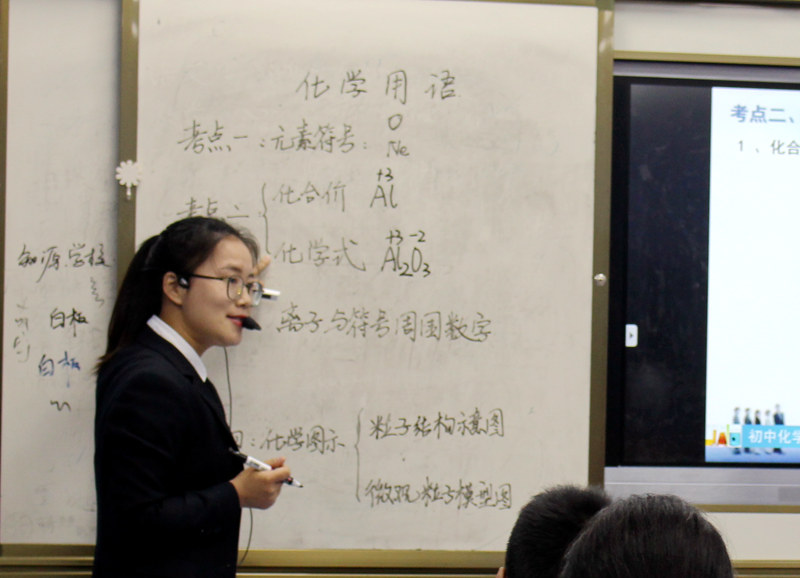 化学用语
考点一:元素符号: O
Ne
考点二 { 化合价 +3 Al
化学式 +3 -2 Al2O3
离子与符号周围数字
:化学图示 { 粒子结构示意图
微观粒子模型图
学校
白板
白板
考点二、
1、化合
初中化学